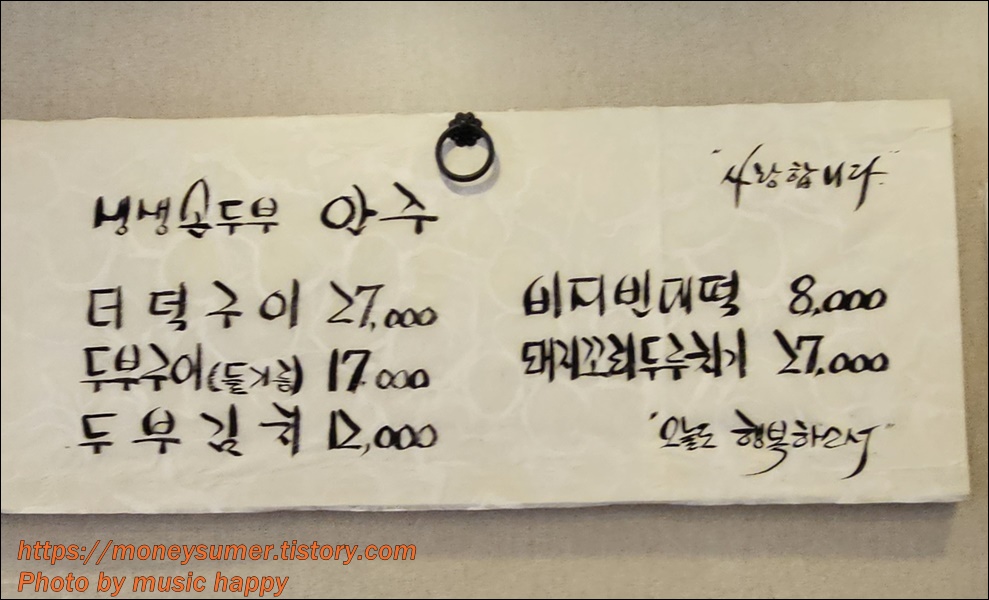 생생손두부 안주
더덕구이 27,000
두부구이(들기름) 17.000
두부김치 12,000
"사랑합니다"
비지빈대떡 8,000
돼지꼬리두루치기 27,000
"오늘도 행복하소서"
https://moneysumer.tistory.com
Photo by music happy